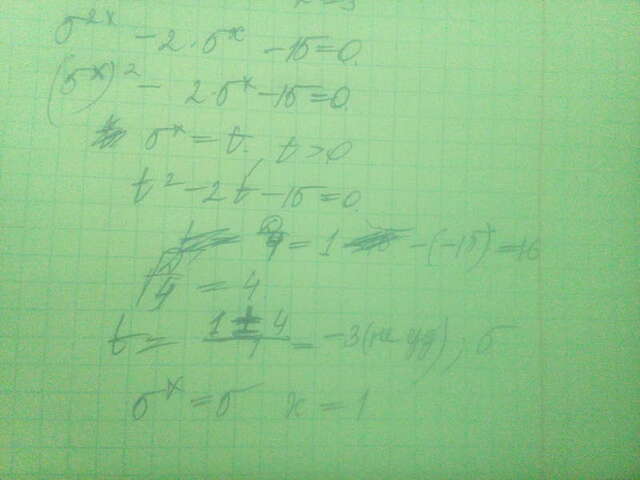 5^{2x} - 2 · 5^x - 15 = 0.
(5^x)^2 - 2 · 5^x - 15 = 0.
5^x = t. t > 0
t^2 - 2t - 15 = 0.
D/4 = 1 - (-15) = 16
√D/4 = 4
t = (1 ± 4)/1 = -3 (не уд), 5
5^x = 5 x = 1